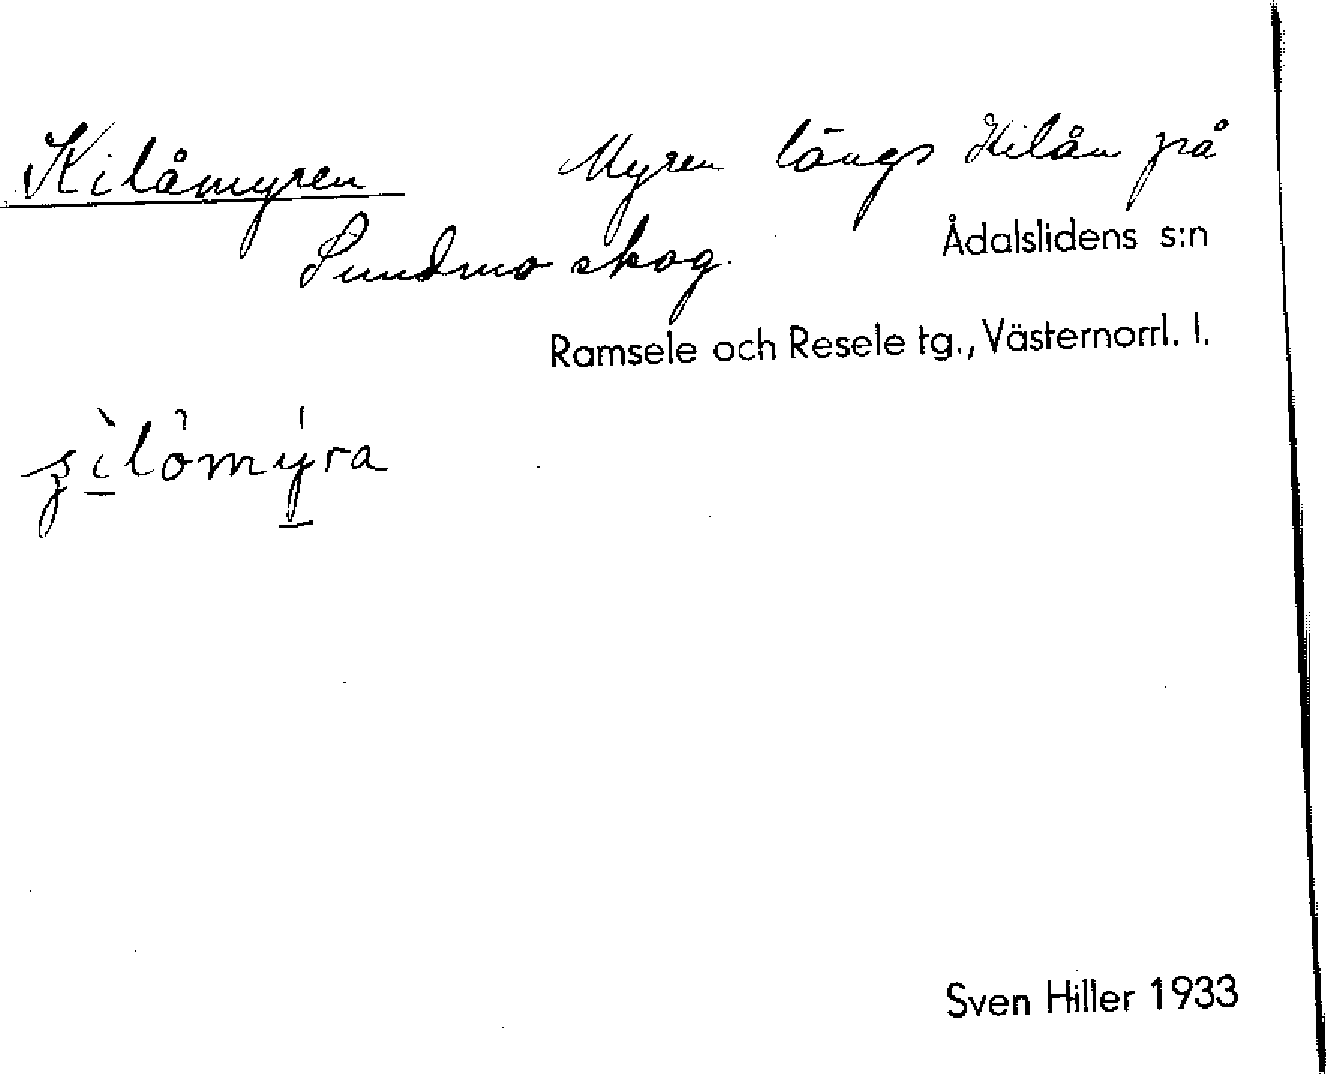 Kilåmyren Myren längs Kilån på
Sundmo skog. Ådalslidens s:n
Ramsele och Resele tg., Västernorrl. l.
Sven Hiller 1933